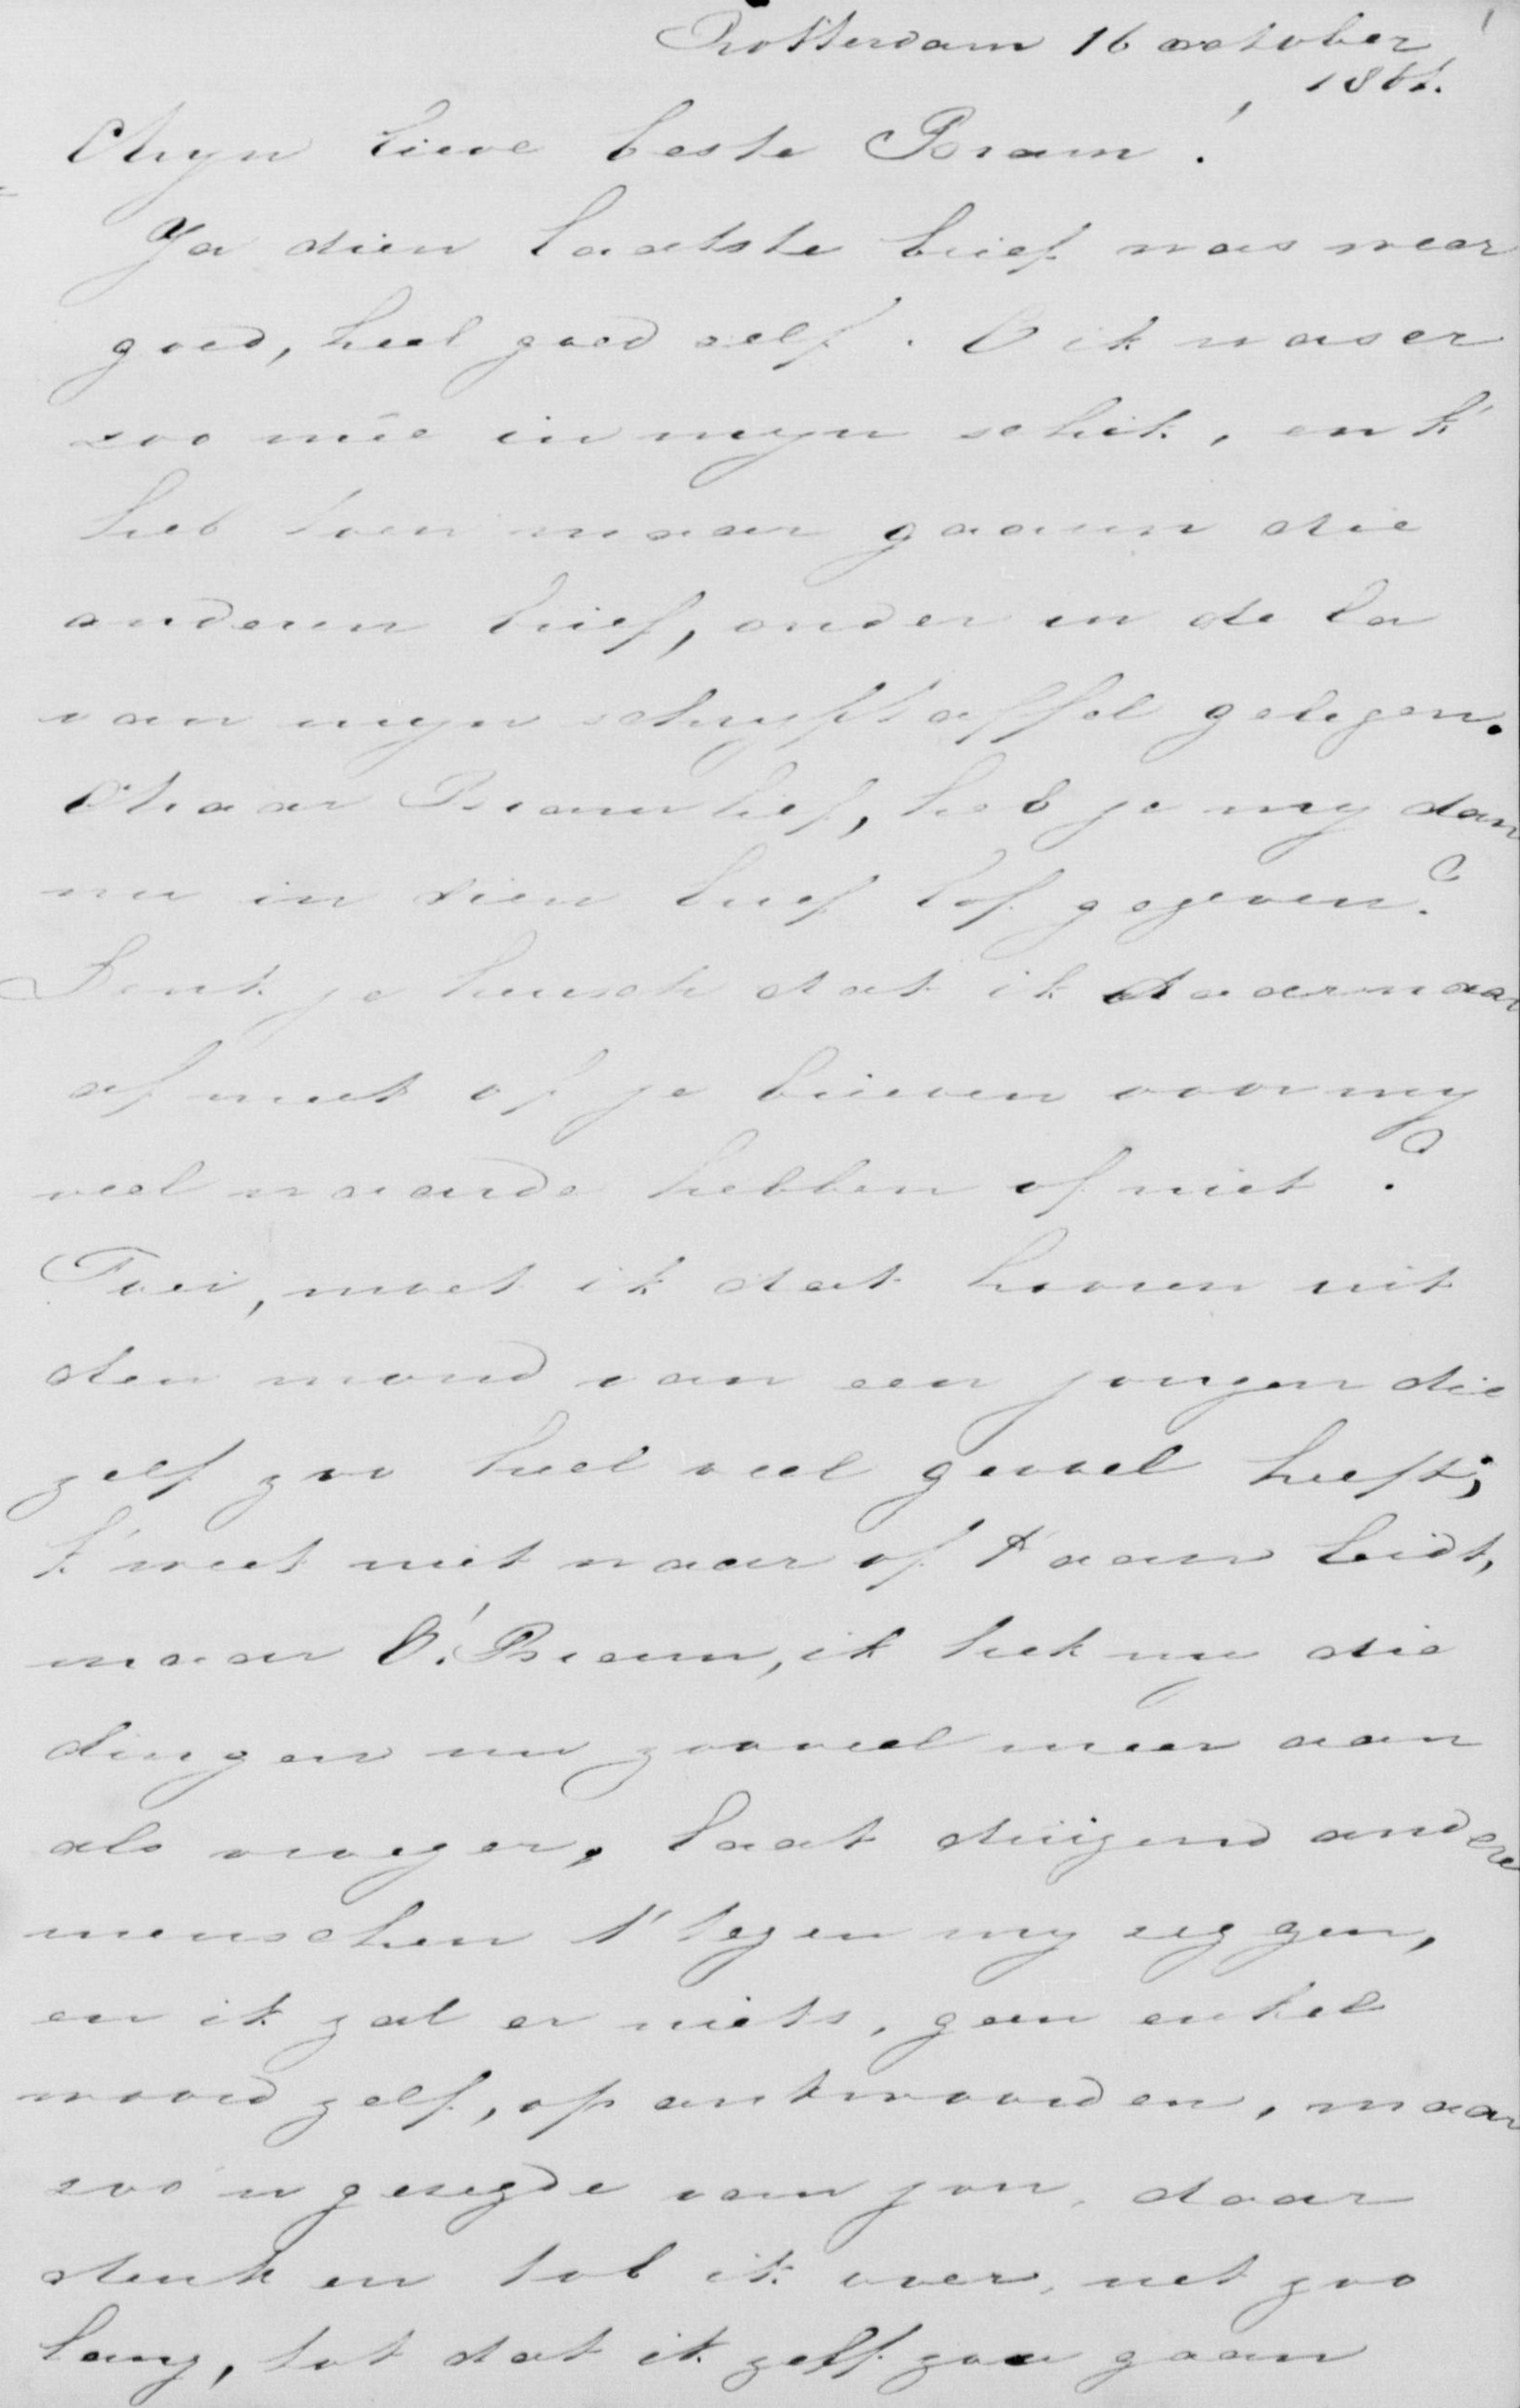 Rotterdam 16 october
Myn lieve beste Bram!
Ja dien laatste brief was weer
goed, heel goed self. O ik was er
soo mêe in myn schik, en k'
heb toen maar gaauw die
anderen brief, onder in de la
van myn schryftaffel gelegen.
Maar Bram lief, heb je my dan
nu in dien brief lof gegeven?
Denk je heusch dat ik daarnaar
af meet of je brieven voor my
veel waarde hebben of niet?
Foei, moet ik dat hooren uit
den mond van een jongen die
zelf zoo heel veel gevoel heeft,
k' weet niet waar of t' aan leidt,
maar O! Bram, ik trek my die
dingen nu zooveel meer aan
als vroeger, laat duizend andere
menschen t' tegen my seggen,
en ik zal er niets, geen enkel
woord zelf, op antwoorden, maar
soo'n gesegde van jou, daar
denk en tob ik over, net zoo
lang, tot dat ik zelf zou gaan